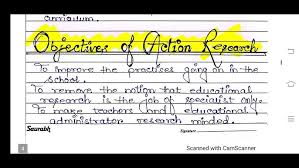 curriculum.
Objectives of Action Research
To improve the practises going on in the
school.
To remove the notion that educational
research is the job of specialist only.
To make teachers and educational
administrator research minded.
Saurabh
Signature
4
Scanned with CamScanner